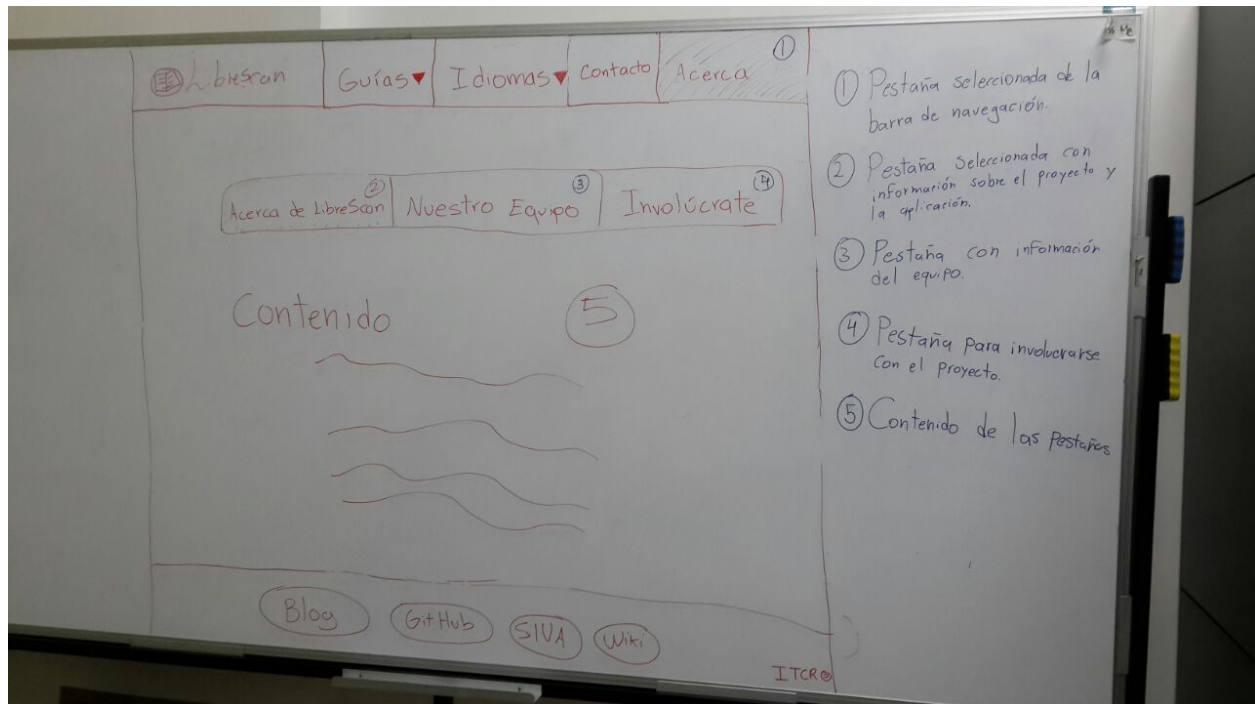 LibreScan Guías▼ Idiomas▼ Contacto Acerca ①
Acerca de LibreScan ② Nuestro Equipo ③ Involúcrate ④
Contenido ⑤
Blog GitHub SIVA Wiki
ITCR©
① Pestaña seleccionada de la
barra de navegación.
② Pestaña seleccionada con
información sobre el proyecto y
la aplicación.
③ Pestaña con información
del equipo.
④ Pestaña para involucrarse
con el proyecto.
⑤ Contenido de las Pestañas